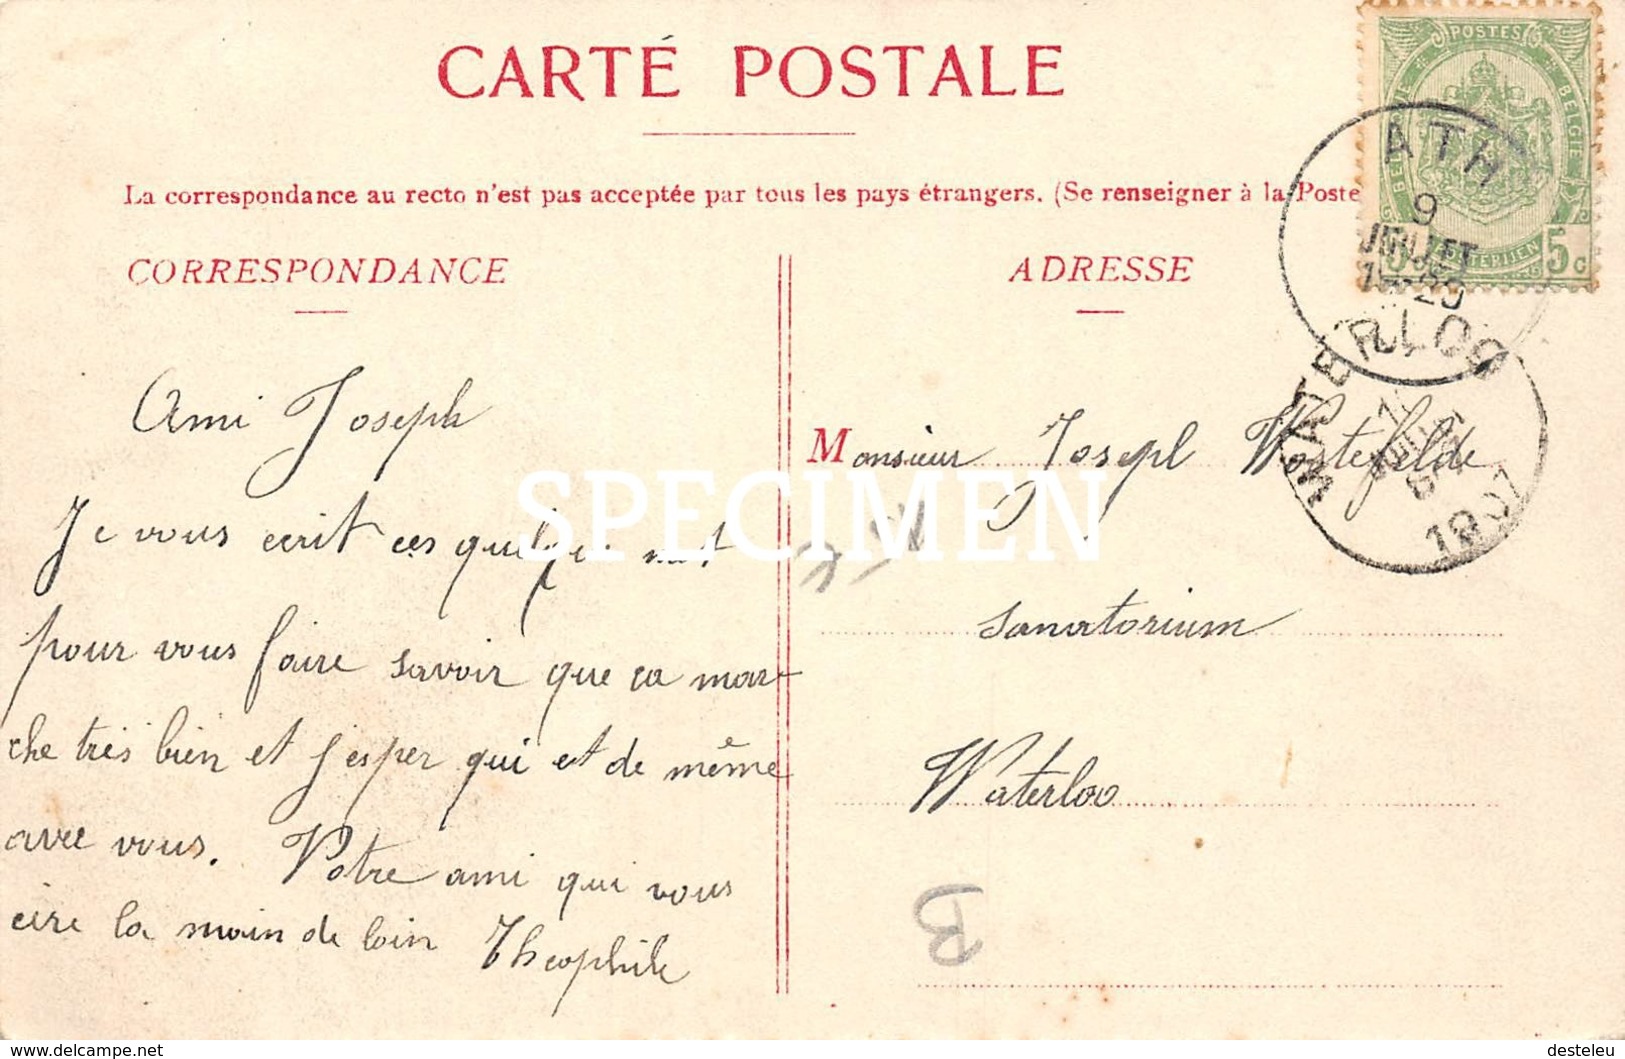 CARTE POSTALE
La correspondance au recto n'est pas acceptée par tous les pays étrangers. (Se renseigner à la Poste
CORRESPONDANCE
Ami Joseph
Je vous ecrit ces quelque mot
pour vous faire savoir que ca mar-
che tres bien et j'esper qui et de même
avec vous. Votre ami qui vous
cire la main de loin Theophile
ADRESSE
Monsieur Joseph
Sanatorium
Waterloo
POSTES
BELGIQUE
5c
ATH
9
JUILLET
WATERLOO
1907
B
SPECIMEN
www.delcampe.net
desteleu